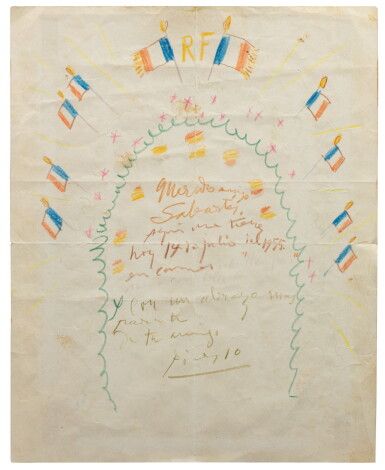 RF
Querido amigo
Sabartés,
aqui me tienes
hoy 14 de julio del 1955
en cannes
y con un abrazo
de
tu amigo
Picasso